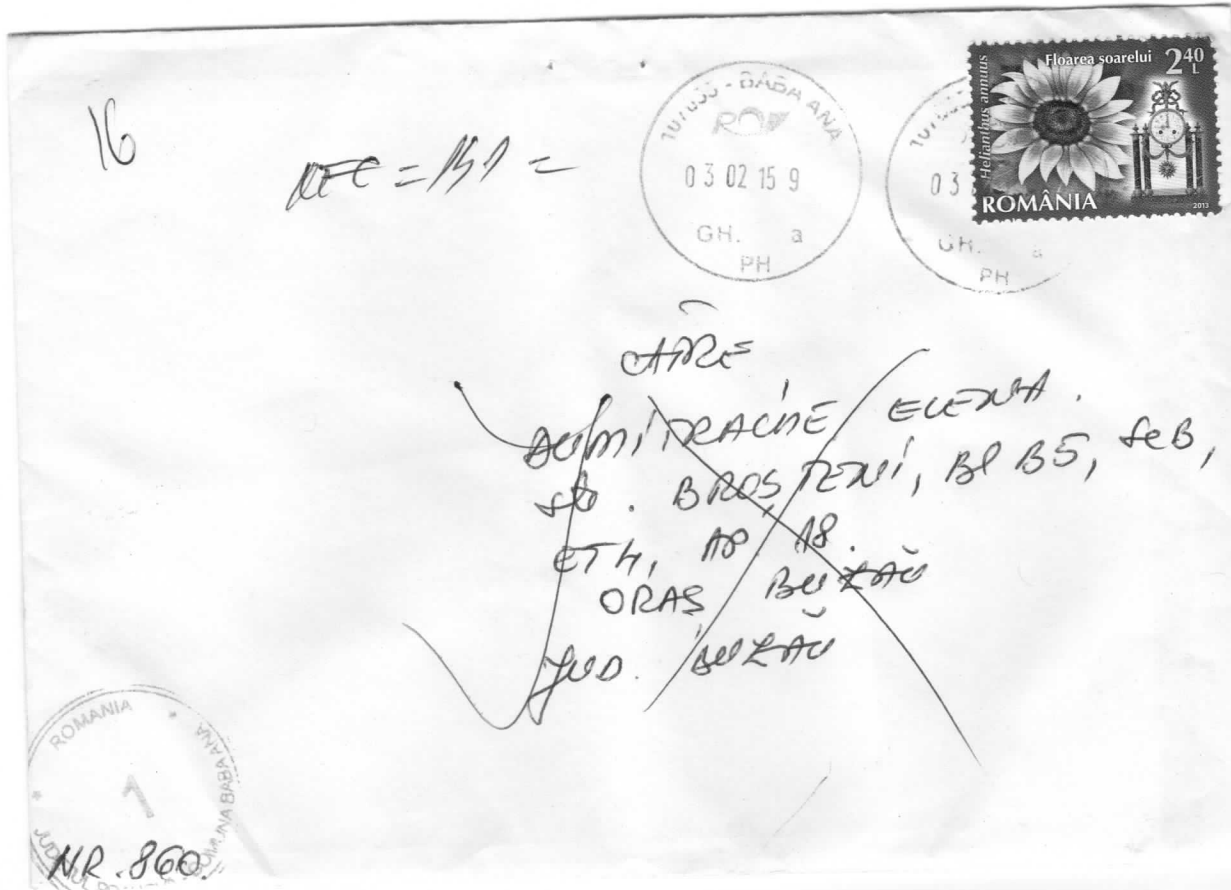 16
REC = 151 =
107035 - BABA ANA
03 02 15 9
GH. a
PH
03
GH. a
PH
Floarea soarelui 2 40 L
Helianthus annuus
ROMÂNIA
2013
CĂTRE
DUMITRACHE ELENA.
str. BROȘTENI, Bl B5, sc B,
ET 4, AP 18.
ORAȘ BUZĂU
JUD. BUZĂU
ROMANIA
COMUNA BABA ANA
1
NR. 860.